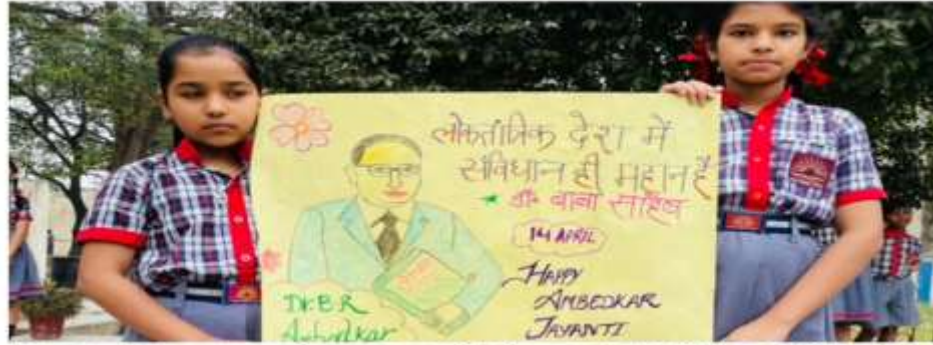 लोकतांत्रिक देश में
संविधान ही महान है
डॉ० बाबा साहिब
14 APRIL
HAPPY
AMBEDKAR
JAYANTI
Dr. B.R
Ambedkar